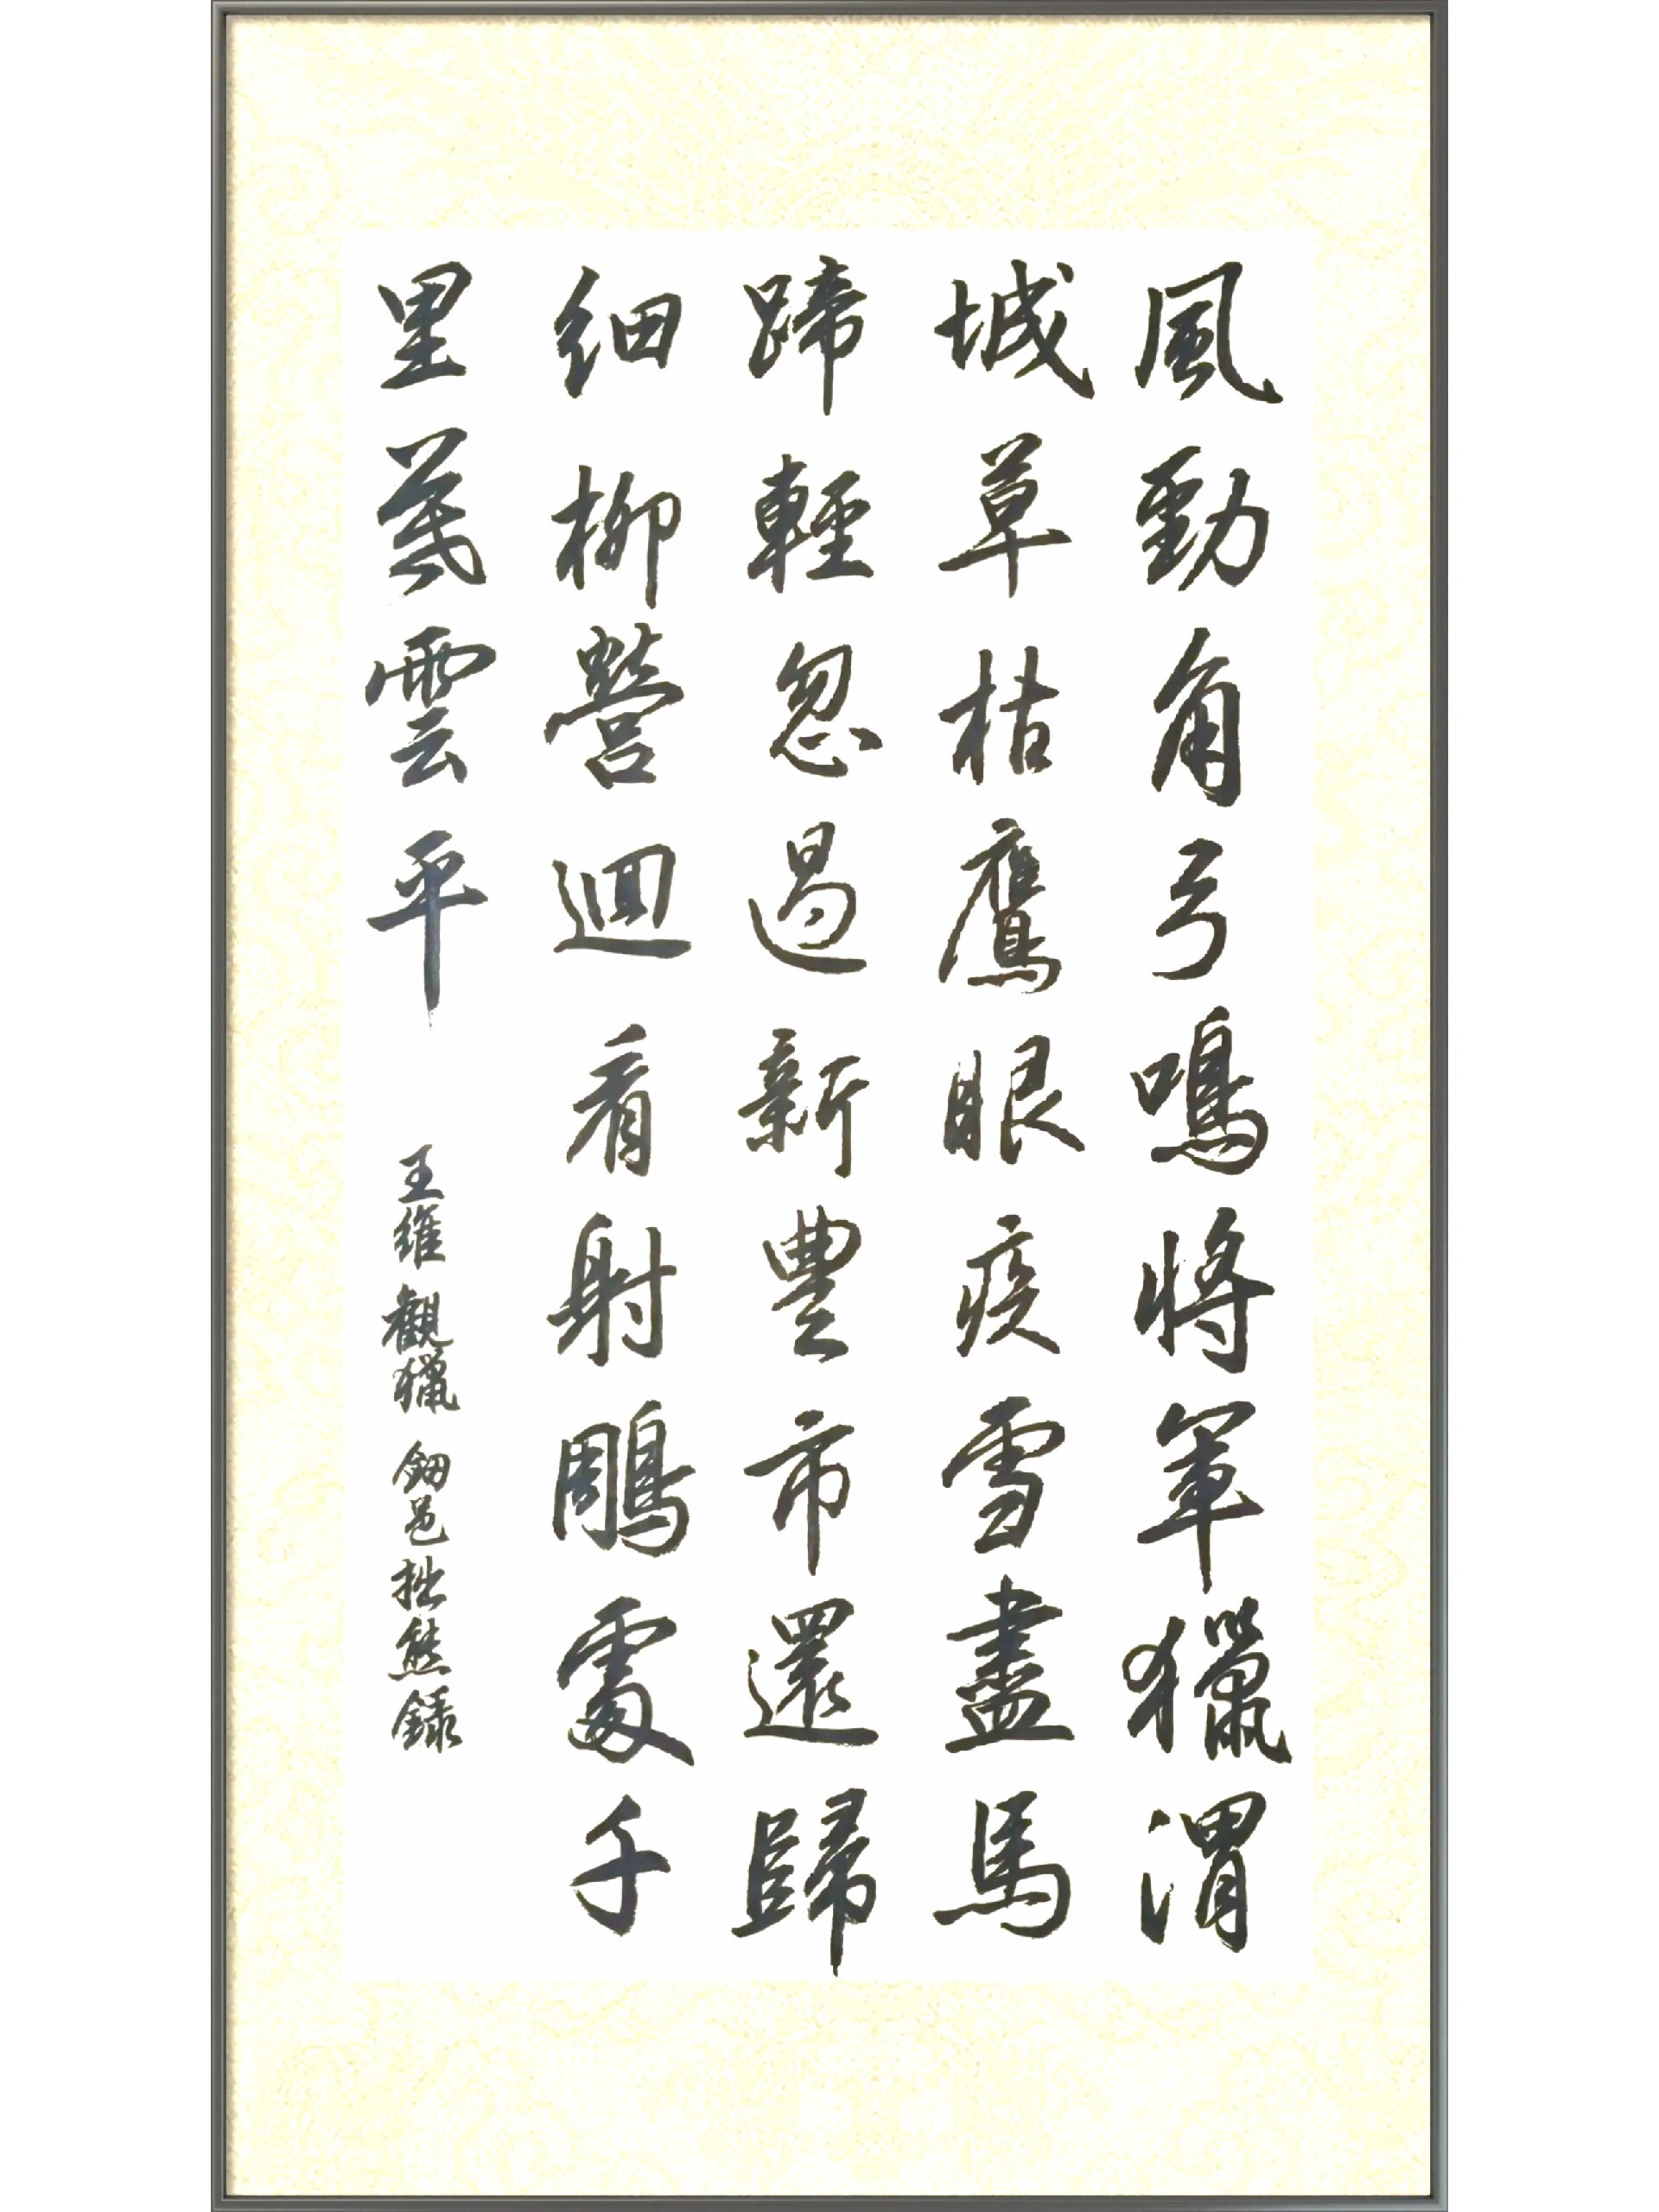 風勁角弓鳴將軍獵渭
城草枯鷹眼疾雪盡馬
蹄輕忽過新豐市還歸
細柳營迴看射鵰處千
里暮雲平 王維 觀獵 邑拙熊錄